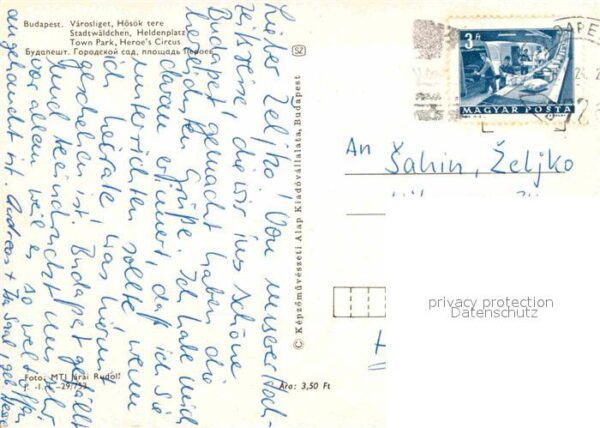 Budapest. Városliget, Hősök tere
Stadtwäldchen, Heldenplatz
Town Park, Heroe's Circus
Будапешт. Городской сад, площадь Героев
SZ
Lieber Željko! Von unserer Hoch-
zeitsreise, die wir ins schöne
Budapest gemacht haben die
herzlichsten Grüße. Ich habe mich
daran erinnert, daß ich Sie
unterrichten sollte wenn
ich heirate, was hiermit
geschehen ist. Budapest gefällt
und beeindruckt uns sehr
vor allem weil es so weltoffen
angehaucht ist. Andreas +
© Képzőművészeti Alap Kiadóvállalata, Budapest
Foto: MTI Járai Rudolf
Ára: 3,50 Ft
3 Ft
MAGYAR POSTA
An Šahin, Željko
privacy protection
Datenschutz